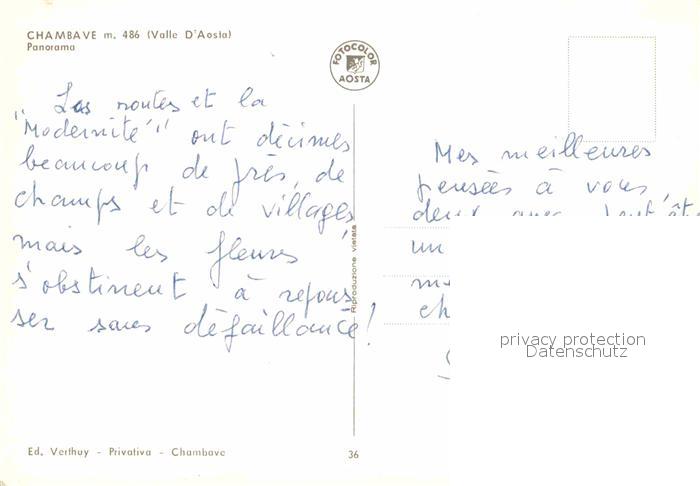 CHAMBAVE m. 486 (Valle D'Aosta)
Panorama
FOTOCOLOR
AOSTA
Les routes et la
"Modernité" ont décimés
beaucoup de près, de
champs et de villages,
mais les fleurs
s'obstinent à repous
ser sans défaillance!
Riproduzione vietata
Mes meilleures
pensées à vous
deux avec
un
ch
privacy protection
Datenschutz
Ed. Verthuy - Privativa - Chambave
36